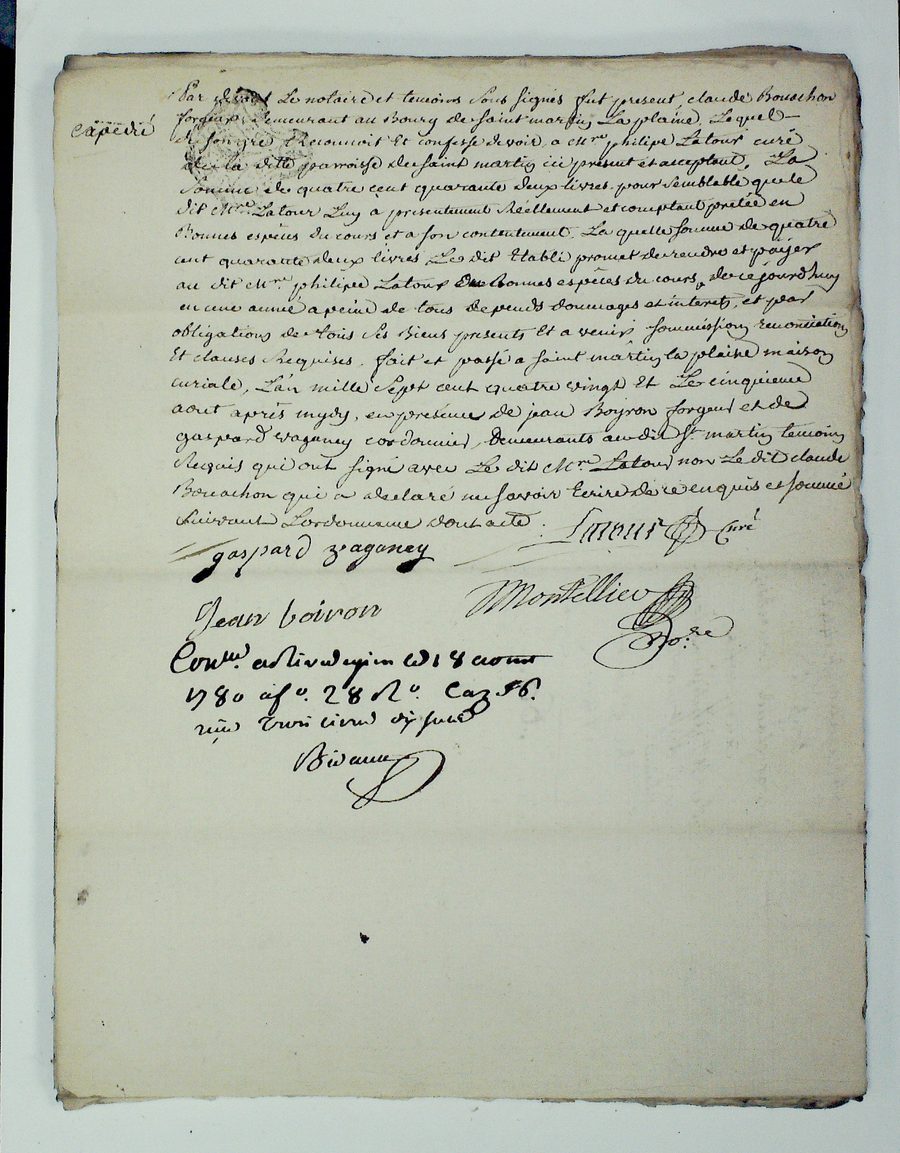 Par devant Le notaire et temoins sous signés fut present, claude Bouachon
expedié
forgeur, demeurant au Bourg de saint martin La plaine, Lequel
de son gré Reconnoit Et confesse devoir, a Mre philipe Latour curé
de la ditte parroisse de saint martin ici present et acceptant, La
somme de quatre cent quarante deux livres pour semblable que le
dit Mre Latour Luy à presentement Réellement et comptant pretée en
Bonnes espèces du cours et a son contentement. La quelle somme de quatre
cent quarante deux livres Le dit Etabli promet de rendre et païer
au dit Mre philipe Latour Bonnes espèces du cours, de ce jourd'huy
en une année a peine de tous depends dommages et interets, et par
obligations de tous ses Biens presents Et a venir, sommission, renontiation
Et clauses Requises. fait et passé a saint martin la plaine maison
curiale, L'an mille sept cent quatre vingt Et Le cinquieme
aout après mydy, en presence de jean Boyron forgeur et de
gaspard vaganey cordonnier, demeurants au dit St martin temoins
Requis qui ont signé avec Le dit Mre Latour non Le dit claude
Bouachon qui a declaré ne savoir Ecrire de ce enquis et sommé
suivant L'ordonnance dont acte.
Latour Curé
gaspard vaganey
Jean boiron
Montellier
No.re
Conlle 18 aout
1780 fo. 28 Ro. Caze 6.